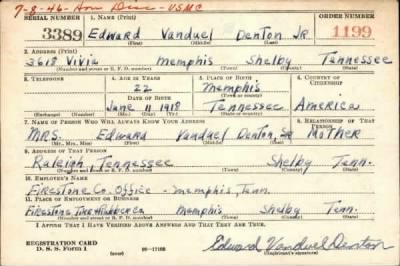 7-8-46-Hon Disc - USMC
SERIAL NUMBER 1. NAME (Print) ORDER NUMBER
3389 Edward Vanduel Denton Jr. 1199
(First) (Middle) (Last)
2. ADDRESS (Print)
3618 Vivia Memphis Shelby Tennessee
(Number and street or R. F. D. number) (Town) (County) (State)
3. TELEPHONE 4. AGE IN YEARS 5. PLACE OF BIRTH 6. COUNTRY OF CITIZENSHIP
22 Memphis
DATE OF BIRTH (Town or county)
June 11 1918 Tennessee America
(Exchange) (No.) (Mo.) (Day) (Yr.) (State or country)
7. NAME OF PERSON WHO WILL ALWAYS KNOW YOUR ADDRESS 8. RELATIONSHIP OF THAT PERSON
MRS. Edward Vanduel Denton, Sr Mother
(Mr., Mrs., Miss) (First) (Middle) (Last)
9. ADDRESS OF THAT PERSON
Raleigh Tennessee Shelby Tenn.
(Number and street or R. F. D. number) (Town) (County) (State)
10. EMPLOYER'S NAME
Firestone Co. Office - Memphis, Tenn.
11. PLACE OF EMPLOYMENT OR BUSINESS
Firestone Tire & Rubber Co Memphis Shelby Tenn.
(Number and street or R. F. D. number) (Town) (County) (State)
I AFFIRM THAT I HAVE VERIFIED ABOVE ANSWERS AND THAT THEY ARE TRUE.
REGISTRATION CARD
D. S. S. Form 1 (over) 16-17105 Edward Vanduel Denton
(Registrant's signature)